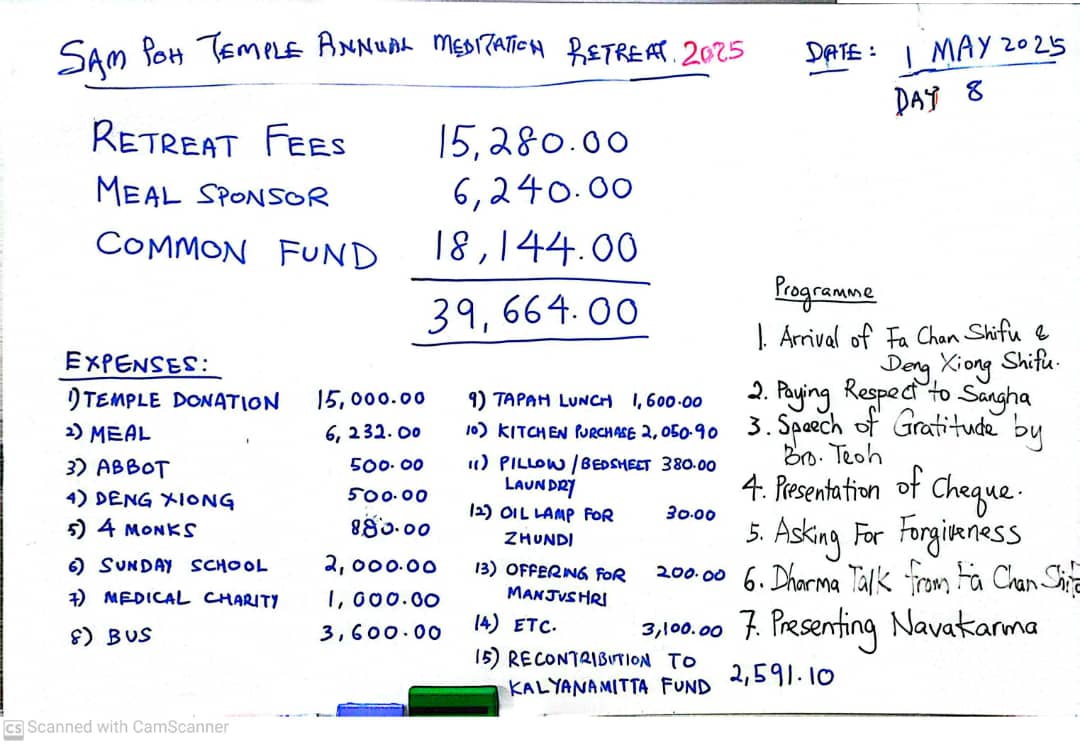 SAM POH TEMPLE ANNUAL MEDITATION RETREAT. 2025
DATE: 1 MAY 2025
DAY 8
RETREAT FEES 15,280.00
MEAL SPONSOR 6,240.00
COMMON FUND 18,144.00
39,664.00
EXPENSES:
1) TEMPLE DONATION 15,000.00
2) MEAL 6,232.00
3) ABBOT 500.00
4) DENG XIONG 500.00
5) 4 MONKS 880.00
6) SUNDAY SCHOOL 2,000.00
7) MEDICAL CHARITY 1,000.00
8) BUS 3,600.00
9) TAPAH LUNCH 1,600.00
10) KITCHEN PURCHASE 2,050.90
11) PILLOW / BEDSHEET 380.00
LAUNDRY
12) OIL LAMP FOR 30.00
ZHUNDI
13) OFFERING FOR 200.00
MANJUSHRI
14) ETC. 3,100.00
15) RECONTRIBUTION TO
KALYANAMITTA FUND 2,591.10
Programme
1. Arrival of Fa Chan Shifu &
Deng Xiong Shifu.
2. Paying Respect to Sangha
3. Speech of Gratitude by
Bro. Teoh
4. Presentation of Cheque.
5. Asking For Forgiveness
6. Dharma Talk from Fa Chan Shifu
7. Presenting Navakarma
CS Scanned with CamScanner